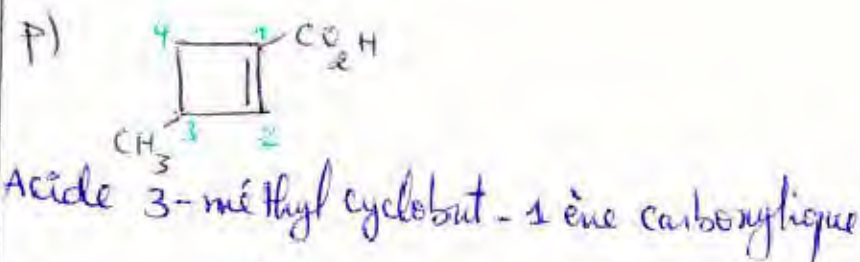 p)
4 1 CO2H
CH3 3 2
Acide 3-méthyl cyclobut-1 ène carboxylique